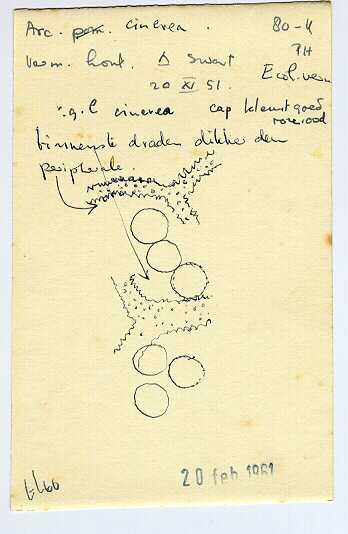 Arc. pom. cinerea. 80-4
TH
Verm. hout. Δ swart Ecol. verm
20 XI 51.
v. g. l cinerea cap kleurt goed
roserood
binnenste draden dikker dan
periphere.
20 feb 1961